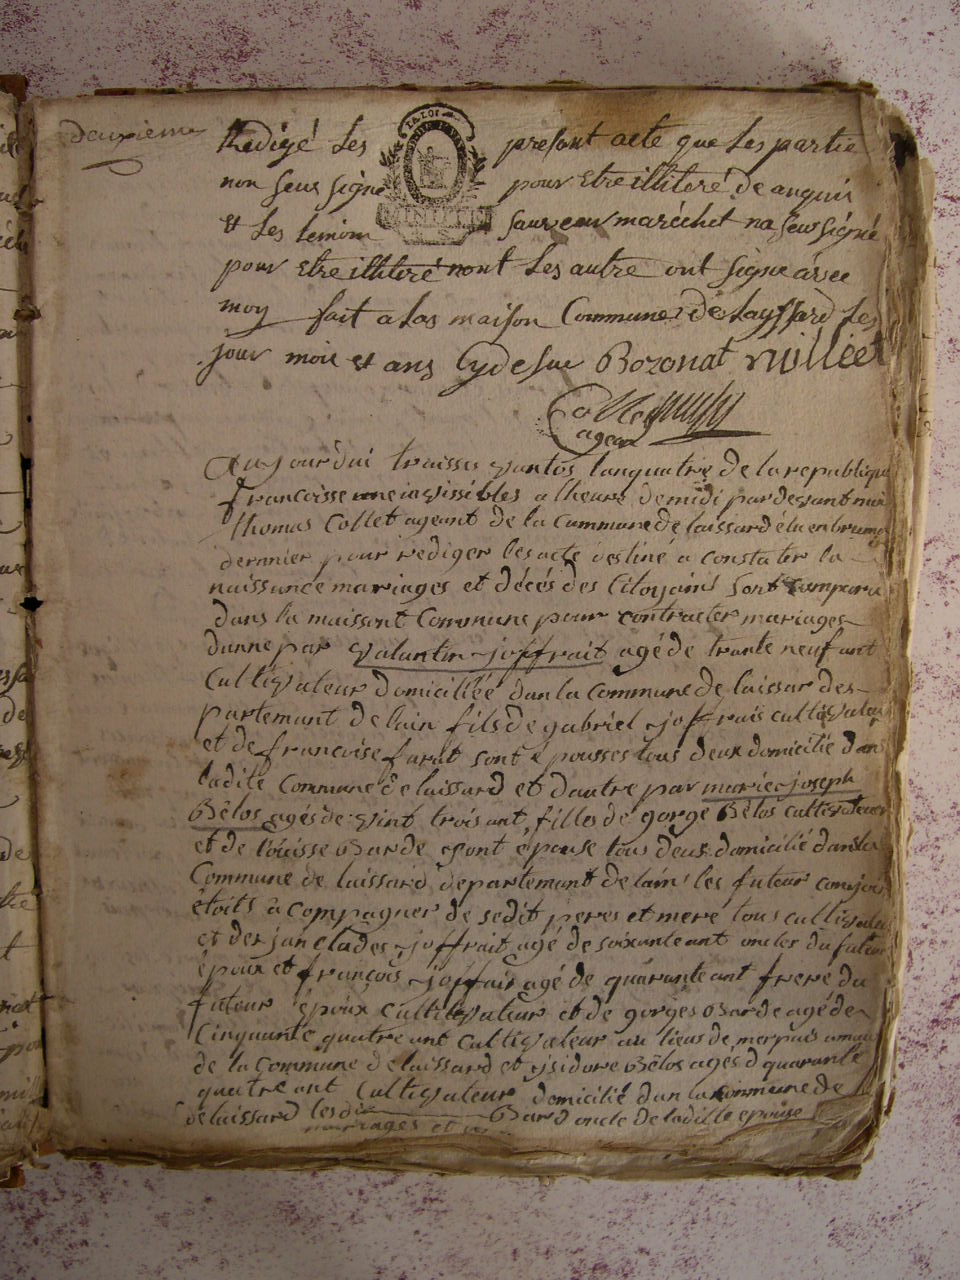 deuxieme
Redigé Les present acte que Les partie
non seus signe pour Etre illiteré de anquir
et Les temoin sauveur maréchet na seus signé
pour Etre illiteré nont Les autre ont signe avec
moy fait a Las maison Commune de Layssard Les
jour mois et ans Cy desue Bozonat rulliet
Collet
agean
LA LOI
aujourdui traisse vantos lanquatre de la republique
francoisse une invissibles a lheure de midi pardevant moi
thomas Collet ageant de la Commune de laissard élu en brume
dernier pour rediger les acte destiné a constater la
naissance mariages et décés des Citoyains sont comparu
dans la maissont Commune pour contracter mariages
dunne par valantin joffrait agé de trante neuf ant
Cultivateur domicillée dan la Commune de laissar des
partemant de lain fils de gabriel joffrais cultivateur
et de francoise farat sont epousses tous deux domicilié dans
ladite Commune de laissard et dautre par marie joseph
Bêlos agés de vint trois ant filles de gorge Bêlos cultivateur
et de loüisse Barde sont épouse tous deux domicilié dans la
Commune de laissard departemant de lain les futeur conjoin
étoits a compagner de sedit peres et mere tous cultivateur
et de janclades joffrait agé de soixante ant oncles du futeur
époux et françois joffrait agé de quarante ant frere du
futeur époux cultivateur et de gorges Barde agé de
Cinquante quatre ant cultivateur au lieus de merpuis
de la Commune de laissard et isidore Bêlos ages d quarante
quatre ant Cultivateur domicilié dan la Commune de
de laissard les di Bard oncle de ladille epouse
mariages et